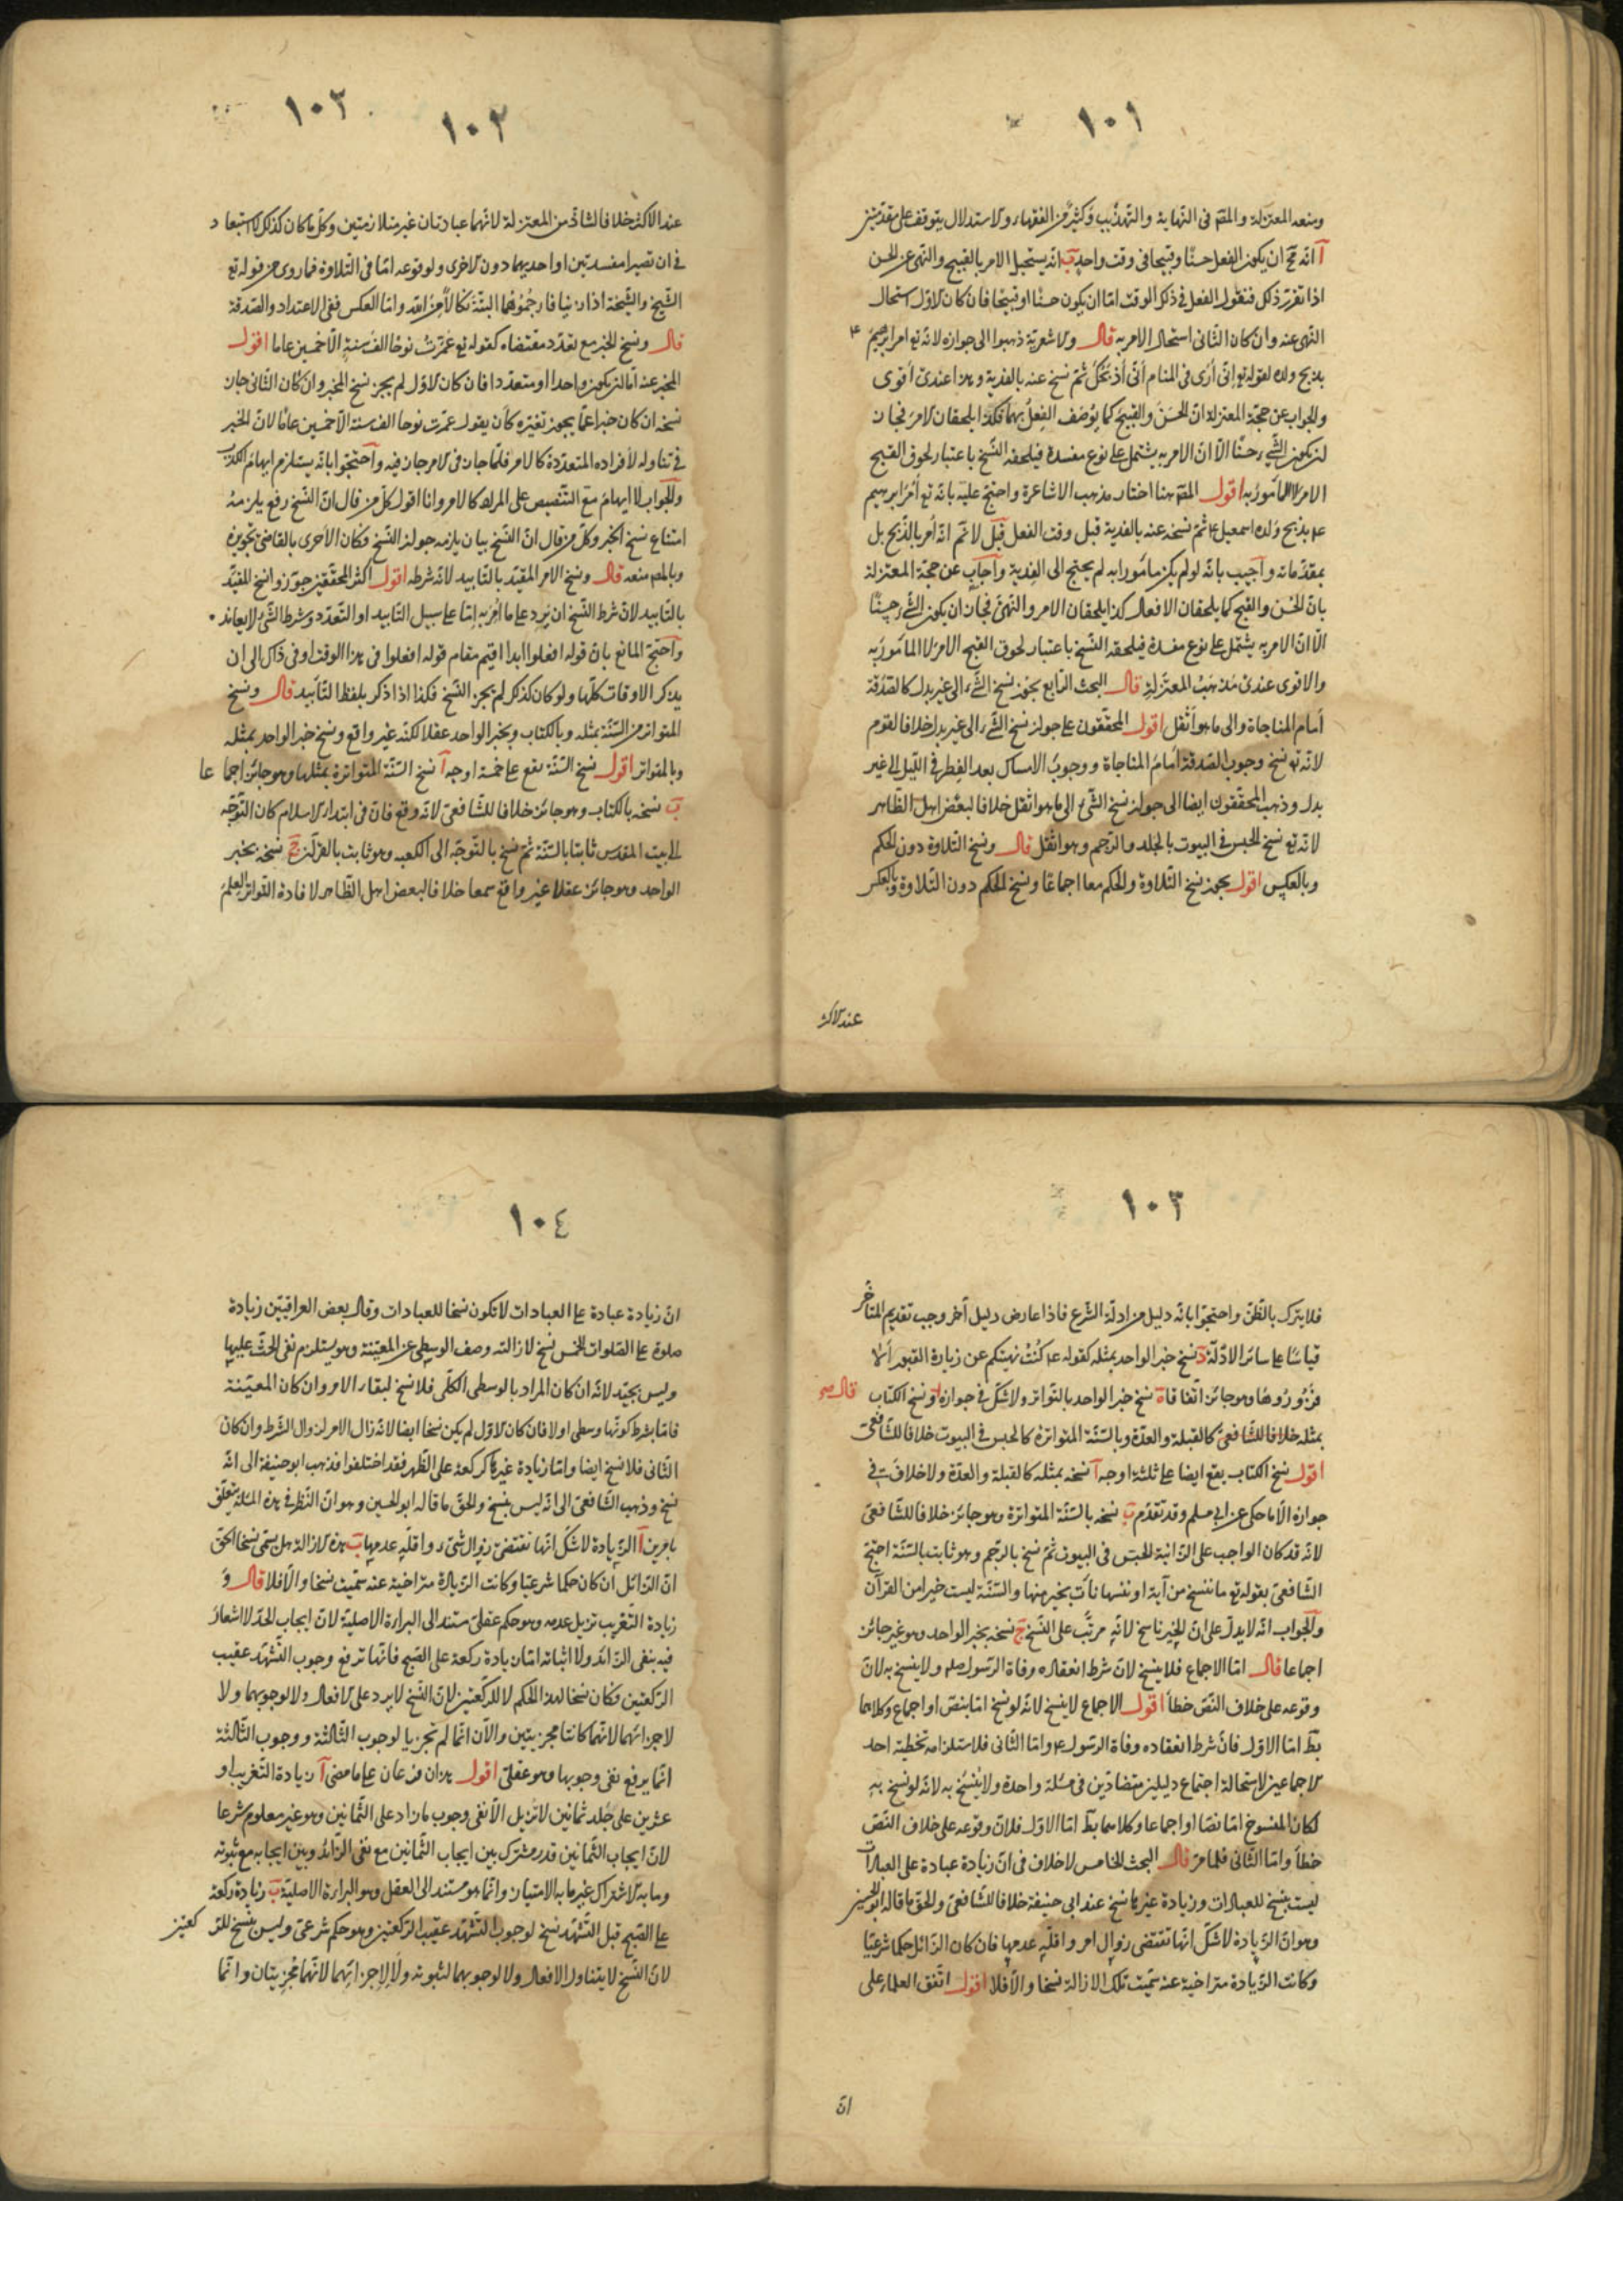 ١٠١
ومنعه المعتزلة والمقم فى النهاية والتهذيب وكثير من الفقهاء والاستدلال يتوقف على مقدمتين
آ انه قبح ان يكون الفعل حسنا وقبيحا فى وقت واحد ب انه يستحيل الامر بالقبيح والنهى عن الحسن
اذا تقرر ذلك فنقول الفعل فى ذلك الوقت اما ان يكون حسنا او قبيحا فان كان الاول استحال
النهى عنه وان كان الثانى استحال الامر به قال والاشعرية ذهبوا الى جوازه لانه تع امر ابرهيم ع
بذبح ولده لقوله تع انى أرى فى المنام أنى أذبحك ثم نسخ عنه بالفدية وهذا عندى اقوى
والجواب عن حجة المعتزلة ان الحسن والقبيح كما يوصف الفعل بهما فكذا يلحقان الامر فجان
ان يكون الشىء حسنا الا ان الامر به يشتمل على نوع مفسدة فيلحقه النسخ باعتبار لحوق القبح
الامر لا المأمور به اقول المقم هنا اختار مذهب الاشاعرة واحتج عليه بانه تع أمر ابرهيم
ع م بذبح ولده اسمعيل ع م ثم نسخه عنه بالفدية قبل وقت الفعل قيل لانم انه أمر بالذبح بل
بمقدماته وأجيب بانه لو لم يكن مأمورا به لم يحتج الى الفدية وأجاب عن حجة المعتزلة
بان الحسن والقبح كما يلحقان الافعال كذا يلحقان الامر والنهى فجان ان يكون الشىء حسنا
الا ان الامر به يشتمل على نوع مفسدة فيلحقه النسخ باعتبار لحوق القبح الامر لا المأمور به
والاقوى عندى مذهب المعتزلة قال البحث الرابع يجوز نسخ الشىء الى غير بدل كالصدقة
أمام المناجاة والى ما هو أثقل اقول المحققون على جواز نسخ الشىء الى غير بدل خلافا لقوم
لانه تع نسخ وجوب الصدقة أمام المناجاة ووجوب الامساك بعد الفطر فى الليل الى غير
بدل وذهب المحققون ايضا الى جواز نسخ الشىء الى ما هو اثقل خلافا لبعض اهل الظاهر
لانه تع نسخ الحبس فى البيوت بالجلد والرجم وهو اثقل قال ونسخ التلاوة دون الحكم
وبالعكس اقول يجوز نسخ التلاوة والحكم معا اجماعا ونسخ الحكم دون التلاوة وبالعكس
عند الاكثر
١٠٣ ١٠٢
عند الاكثر خلافا لشاذ من المعتزلة لانهما عبادتان غير متلازمتين وكل ما كان كذلك لا استبعاد
فى ان تصيرا مفسدتين او احديهما دون الاخرى ولوقوعه اما فى التلاوة فما روى من قوله تع
الشيخ والشيخة اذا زنيا فارجموهما البتة نكالا من الله واما العكس ففى الاعتداد والصدقة
قال ونسخ الخبر مع تعدد مقتضاه كقوله تع عمرت نوحا الف سنة الا خمسين عاما اقول
المخبر عنه اما ان يكون واحدا او متعددا فان كان الاول لم يجز نسخ الخبر وان كان الثانى جان
نسخه ان كان خبرا عما يجوز تغيره كان يقول عمرت نوحا الف سنة الا خمسين عاما لان الخبر
فى تناوله لأفراده المتعددة كالامر فلما جان فى الامر جان فيه وأحتجوا بانه يستلزم ايهام الكذب
والجواب لا ايهام مع التنصيص على المراد كالامر وانا اقول كل من قال ان النسخ رفع يلزمه
امتناع نسخ الخبر وكل من قال ان النسخ بيان يلزمه جواز النسخ فكان الأحرى بالقاضى تجويزه
وبالمص منعه قال ونسخ الامر المقيد بالتابيد لانه شرطه اقول اكثر المحققين جوزوا نسخ المقيد
بالتابيد لان شرط النسخ ان يرد على ما أمر به اما على سبيل التابيد او التعدد وشرط الشىء لا يعانده
وأحتج المانع بان قوله افعلوا ابدا اقيم مقام قوله افعلوا فى هذا الوقت وفى ذاك الى ان
يذكر الاوقات كلها ولو كان كذلك لم يجز النسخ فكذا اذا ذكر بلفظ التأبيد قال ونسخ
المتواتر من السنة بمثله وبالكتاب وبخبر الواحد عقلا لكنه غير واقع ونسخ خبر الواحد بمثله
وبالمتواتر اقول نسخ السنة يقع على خمسة اوجه آ نسخ السنة المتواترة بمثلها وهو جائز اجماعا
ب نسخه بالكتاب وهو جائز خلافا للشافعى لانه وقع فان فى ابتداء الاسلام كان التوجه
الى بيت المقدس ثابتا بالسنة ثم نسخ بالتوجه الى الكعبه وهو ثابت بالقرآن ج نسخه بخبر
الواحد وهو جائز عقلا غير واقع سمعا خلافا لبعض اهل الظاهر لافادة التواتر العلم
١٠٣
فلا يترك بالظن واحتجوا بانه دليل من ادلة الشرع فاذا عارض دليل آخر وجب تقديم المتأخر
قياسا على سائر الادلة د نسخ خبر الواحد بمثله كقوله ع م كنت نهيتكم عن زيارة القبور ألا
فزوروها وهو جائز اتفاقا ه نسخ خبر الواحد بالتواتر ولا شك فى جوازه قال صح ونسخ الكتاب
بمثله خلافا للشافعى كالقبلة والعدة وبالسنة المتواترة كالحبس فى البيوت خلافا للشافعى
اقول نسخ الكتاب يقع ايضا على ثلثة اوجه آ نسخه بمثله كالقبلة والعدة ولا خلاف فى
جوازه الا ما حكى عن ابى مسلم وقد تقدم ب نسخه بالسنة المتواترة وهو جائز خلافا للشافعى
لانه قد كان الواجب على الزانية الحبس فى البيوت ثم نسخ بالرجم وهو ثابت بالسنة احتج
الشافعى بقوله تع ما ننسخ من آية او ننسها نأت بخير منها والسنة ليست خيرا من القرآن
والجواب انه لا يدل على ان الخير ناسخ لانه مرتب على النسخ ج نسخه بخبر الواحد وهو غير جائز
اجماعا قال اما الاجماع فلا ينسخ لان شرط انعقاده وفاة الرسول صلم ولا ينسخ به لان
وقوعه على خلاف النص خطأ اقول الاجماع لا ينسخ لانه لو نسخ اما بنص او اجماع وكلاهما
بط اما الاول فان شرط انعقاده وفاة الرسول ع واما الثانى فلاستلزامه تخطية احد
الاجماعين لاستحالة اجتماع دليلين متضادين فى مسئلة واحدة ولا ينسخ به لانه لو نسخ به
لكان المنسوخ اما نصا او اجماعا وكلاهما بط اما الاول فلان وقوعه على خلاف النص
خطأ واما الثانى فلما مر قال البحث الخامس لا خلاف فى ان زيادة عبادة على العبادات
ليست بنسخ للعبادات وزيادة غيرها نسخ عند ابى حنيفة خلافا للشافعى والحق ما قاله ابو الحسين
وهو ان الزيادة لا شك انها تقتضى زوال امر واقله عدمها فان كان الزائل حكما شرعيا
وكانت الزيادة متراخية عنه سميت تلك الازالة نسخا والا فلا اقول اتفق العلماء على
ان
١٠٤
ان زيادة عبادة على العبادات لا تكون نسخا للعبادات وقال بعض العراقيين زيادة
صلوة على الصلوات الخمس نسخ لازالته وصف الوسطى عن المعينة وهو يستلزم نفى الحث عليها
وليس بجيد لانه ان كان المراد بالوسطى الكلى فلا نسخ لبقاء الامر وان كان المعينة
فاما بشرط كونها وسطى او لا فان كان الاول لم يكن نسخا ايضا لانه زال الامر لزوال الشرط وان كان
الثانى فلا نسخ ايضا واما زيادة غيرها كركعة على الظهر فقد اختلفوا فذهب ابو حنيفة الى انه
نسخ وذهب الشافعى الى انه ليس بنسخ والحق ما قاله ابو الحسين وهو ان النظر فى هذه المسئلة يتعلق
بامرين آ الزيادة لا شك انها تقتضى زوال شىء واقله عدمها ب هذه الازالة هل يسمى نسخا الحق
ان الزائل ان كان حكما شرعيا وكانت الزيادة متراخية عنه سميت نسخا والا فلا قال و
زيادة التغريب تزيل عدمه وهو حكم عقلى مستند الى البراءة الاصلية لان ايجاب الحد لا اشعار
فيه بنفى الزائد ولا اثباته اما زيادة ركعة على الصبح فانها ترفع وجوب التشهد عقيب
الركعتين فكان نسخا لهذا الحكم لا للركعتين لان النسخ لا يرد على الافعال ولا لوجوبهما ولا
لاجزائهما لانهما كانتا مجزيتين والآن انما لم تجزيا لوجوب الثالثة ووجوب الثالثة
انما يرفع نفى وجوبها وهو عقلى اقول هذان فرعان على ما مضى آ زيادة التغريب او
عشرين على جلد ثمانين لا تزيل الا نفى وجوب ما زاد على الثمانين وهو غير معلوم شرعا
لان ايجاب الثمانين قدر مشترك بين ايجاب الثمانين مع نفى الزائد وبين ايجابه مع ثبوته
وما به الاشتراك غير ما به الامتيان وانما هو مستند الى العقل وهو البراءة الاصلية ب زيادة ركعة
على الصبح قبل التشهد نسخ لوجوب التشهد عقيب الركعتين وهو حكم شرعى وليس بنسخ للركعتين
لان النسخ لا يتناول الافعال ولا لوجوبهما لثبوته ولا لاجزائهما لانهما مجزيتان وانما